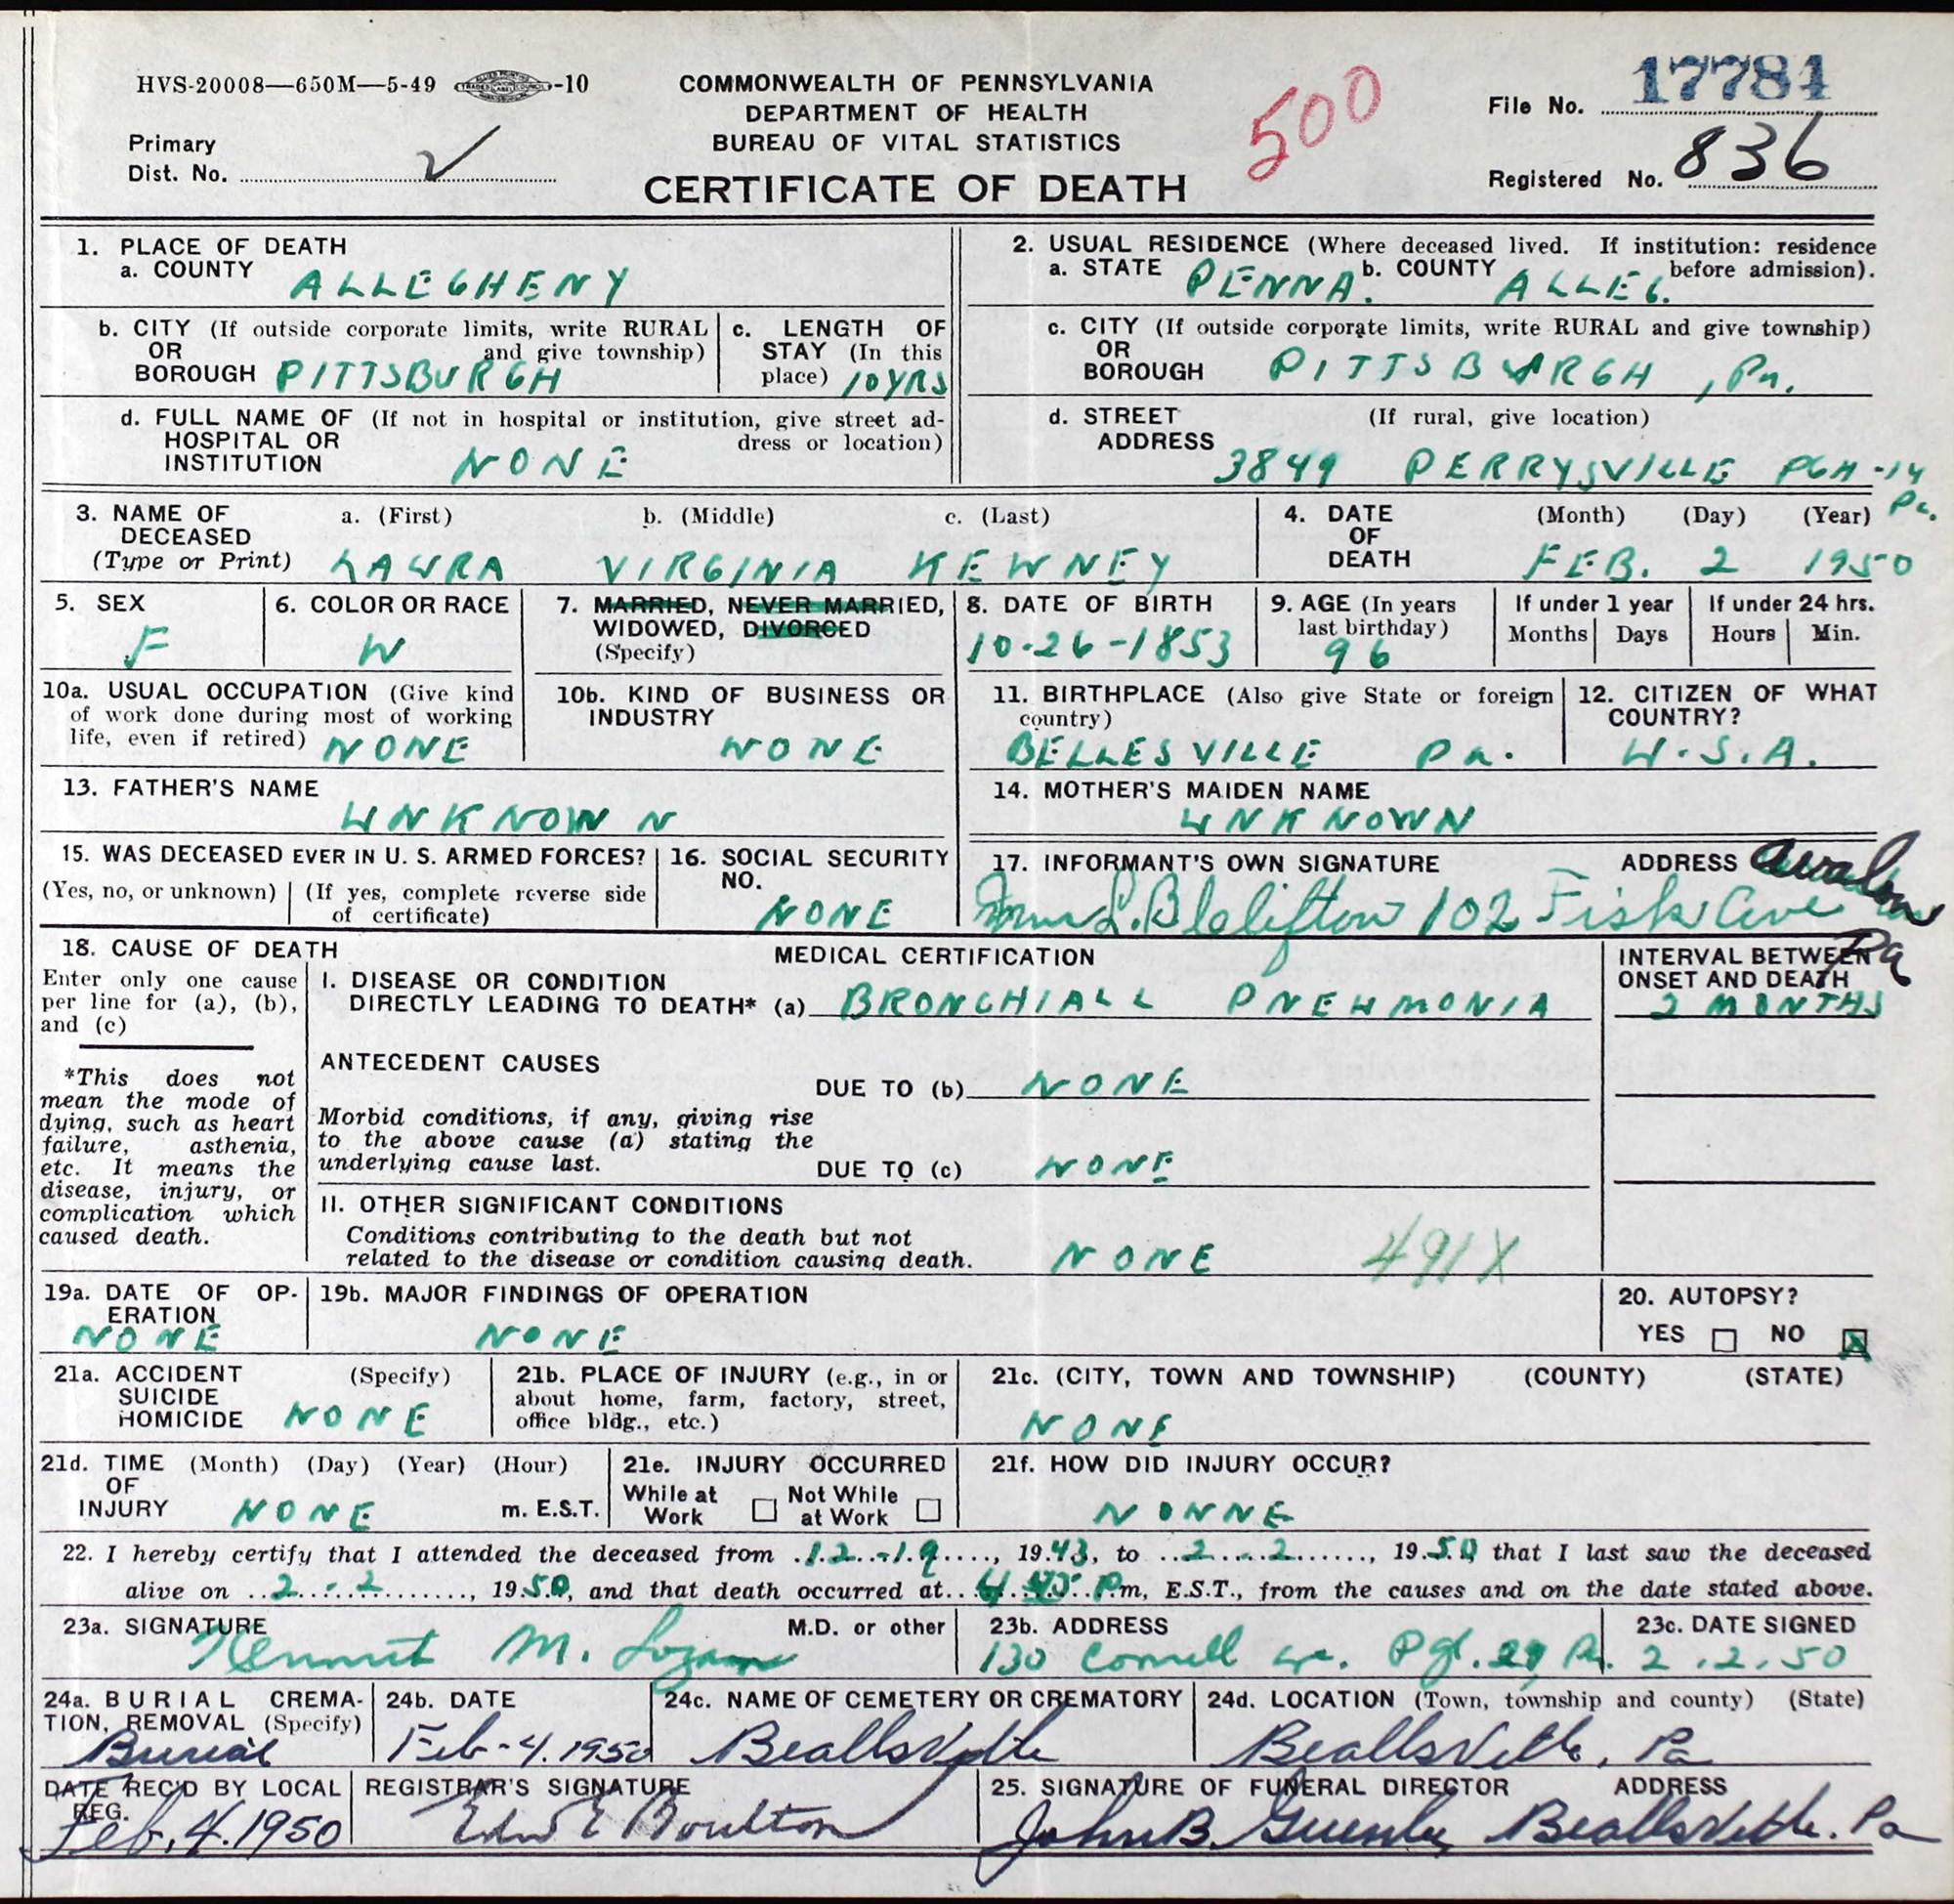 HVS-20008—650M—5-49 -10
COMMONWEALTH OF PENNSYLVANIA
DEPARTMENT OF HEALTH
BUREAU OF VITAL STATISTICS
CERTIFICATE OF DEATH
500
File No. 17784
Primary
Dist. No.
Registered No. 836
1. PLACE OF DEATH
a. COUNTY ALLEGHENY
2. USUAL RESIDENCE (Where deceased lived. If institution: residence before admission).
a. STATE PENNA. b. COUNTY ALLEG.
b. CITY (If outside corporate limits, write RURAL
OR and give township)
BOROUGH PITTSBURGH
c. LENGTH OF
STAY (In this
place) 10 YRS
c. CITY (If outside corporate limits, write RURAL and give township)
OR
BOROUGH PITTSBURGH, Pa.
d. FULL NAME OF (If not in hospital or institution, give street ad-
HOSPITAL OR dress or location)
INSTITUTION NONE
d. STREET (If rural, give location)
ADDRESS
3849 PERRYSVILLE PGH-14
Pa.
3. NAME OF a. (First) b. (Middle) c. (Last)
DECEASED
(Type or Print) LAURA VIRGINIA KEWNEY
4. DATE (Month) (Day) (Year)
OF
DEATH FEB. 2 1950
5. SEX
F
6. COLOR OR RACE
W
7. MARRIED, NEVER MARRIED,
WIDOWED, DIVORCED
(Specify)
8. DATE OF BIRTH
10-26-1853
9. AGE (In years
last birthday)
96
If under 1 year
Months Days
If under 24 hrs.
Hours Min.
10a. USUAL OCCUPATION (Give kind
of work done during most of working
life, even if retired) NONE
10b. KIND OF BUSINESS OR
INDUSTRY
NONE
11. BIRTHPLACE (Also give State or foreign
country)
BELLESVILLE Pa.
12. CITIZEN OF WHAT
COUNTRY?
U.S.A.
13. FATHER'S NAME
UNKNOWN
14. MOTHER'S MAIDEN NAME
UNKNOWN
15. WAS DECEASED EVER IN U. S. ARMED FORCES?
(Yes, no, or unknown) (If yes, complete reverse side
of certificate)
16. SOCIAL SECURITY
NO.
NONE
17. INFORMANT'S OWN SIGNATURE ADDRESS Avalon
102 Fisk Ave
Pa
18. CAUSE OF DEATH
Enter only one cause
per line for (a), (b),
and (c)
*This does not
mean the mode of
dying, such as heart
failure, asthenia,
etc. It means the
disease, injury, or
complication which
caused death.
MEDICAL CERTIFICATION
I. DISEASE OR CONDITION
DIRECTLY LEADING TO DEATH* (a) BRONCHIALL PNEUMONIA
INTERVAL BETWEEN
ONSET AND DEATH
2 MONTHS
ANTECEDENT CAUSES
DUE TO (b) NONE
Morbid conditions, if any, giving rise
to the above cause (a) stating the
underlying cause last.
DUE TO (c) NONE
II. OTHER SIGNIFICANT CONDITIONS
Conditions contributing to the death but not
related to the disease or condition causing death.
NONE 491X
19a. DATE OF OP-
ERATION
NONE
19b. MAJOR FINDINGS OF OPERATION
NONE
20. AUTOPSY?
YES NO X
21a. ACCIDENT (Specify)
SUICIDE
HOMICIDE NONE
21b. PLACE OF INJURY (e.g., in or
about home, farm, factory, street,
office bldg., etc.)
21c. (CITY, TOWN AND TOWNSHIP) (COUNTY) (STATE)
NONE
21d. TIME (Month) (Day) (Year) (Hour)
OF
INJURY NONE m. E.S.T.
21e. INJURY OCCURRED
While at Work Not While at Work
21f. HOW DID INJURY OCCUR?
NONNE
22. I hereby certify that I attended the deceased from 12-19, 1943, to 2-2, 1950, that I last saw the deceased
alive on 2-2, 1950, and that death occurred at Pm, E.S.T., from the causes and on the date stated above.
23a. SIGNATURE M.D. or other
Kermit M. Logan
23b. ADDRESS
130 Cornell Pgh. 29, Pa.
23c. DATE SIGNED
2.2.50
24a. BURIAL CREMA-
TION, REMOVAL (Specify)
Burial
24b. DATE
Feb-4.1950
24c. NAME OF CEMETERY OR CREMATORY
Beallsville
24d. LOCATION (Town, township and county) (State)
Beallsville, Pa
DATE REC'D BY LOCAL
REG.
Feb, 4.1950
REGISTRAR'S SIGNATURE
Edw E Boulton
25. SIGNATURE OF FUNERAL DIRECTOR ADDRESS
John B. Beallsville. Pa